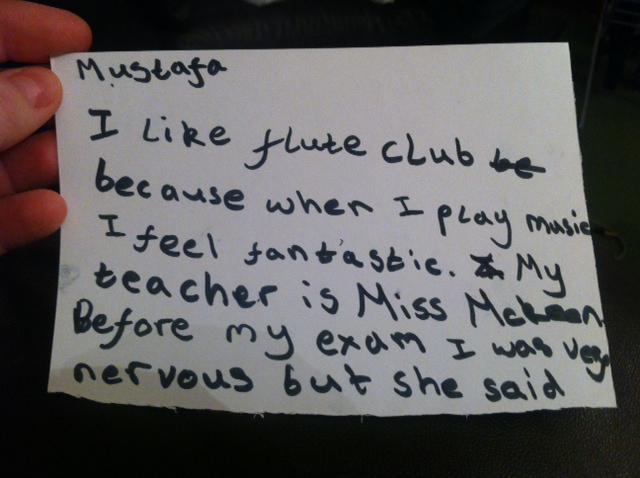 Mustafa
I like flute club
because when I play music
I feel fantastic. My
teacher is Miss McKeen.
Before my exam I was very
nervous but she said